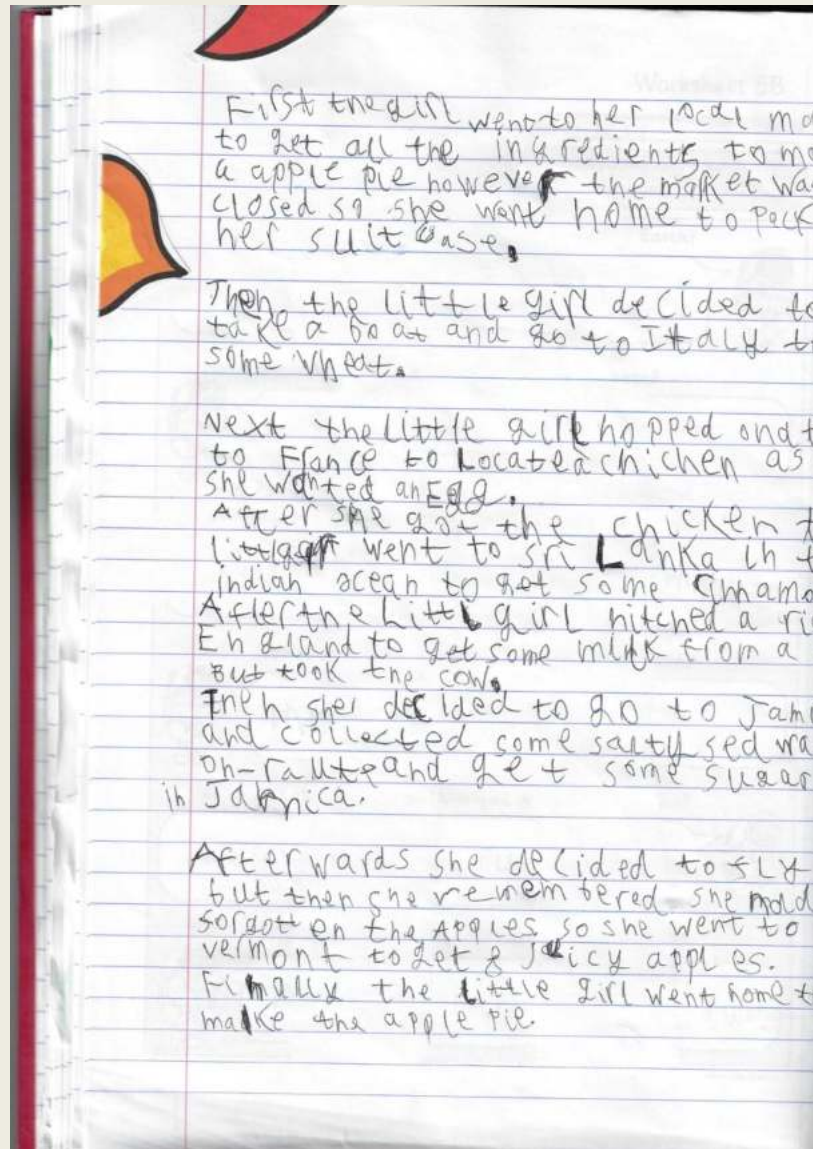 First the girl went to her local ma
to get all the ingredients to ma
a apple pie however the market wa
closed so she went home to pack
her suitcase.
Then the little girl decided to
take a boat and go to Itdly t
some wheat.
Next the little girl hopped on a t
to France to Locate a chichen as
she wanted an Egg.
After she got the chicken t
little girl went to sri Lanka in t
indian ocean to get some cinnamo
After the Little girl hitched a ri
England to get some milk from a
But took the cow.
Then she decided to go to Jam
and collected some salty sed wa
on-raute and get some sugar
in Jamica.
Afterwards she decided to fly
but then she remembered she
forgotten the Apples so she went to
vermont to get 8 juicy apples.
Finally the little girl went home t
make the apple pie.